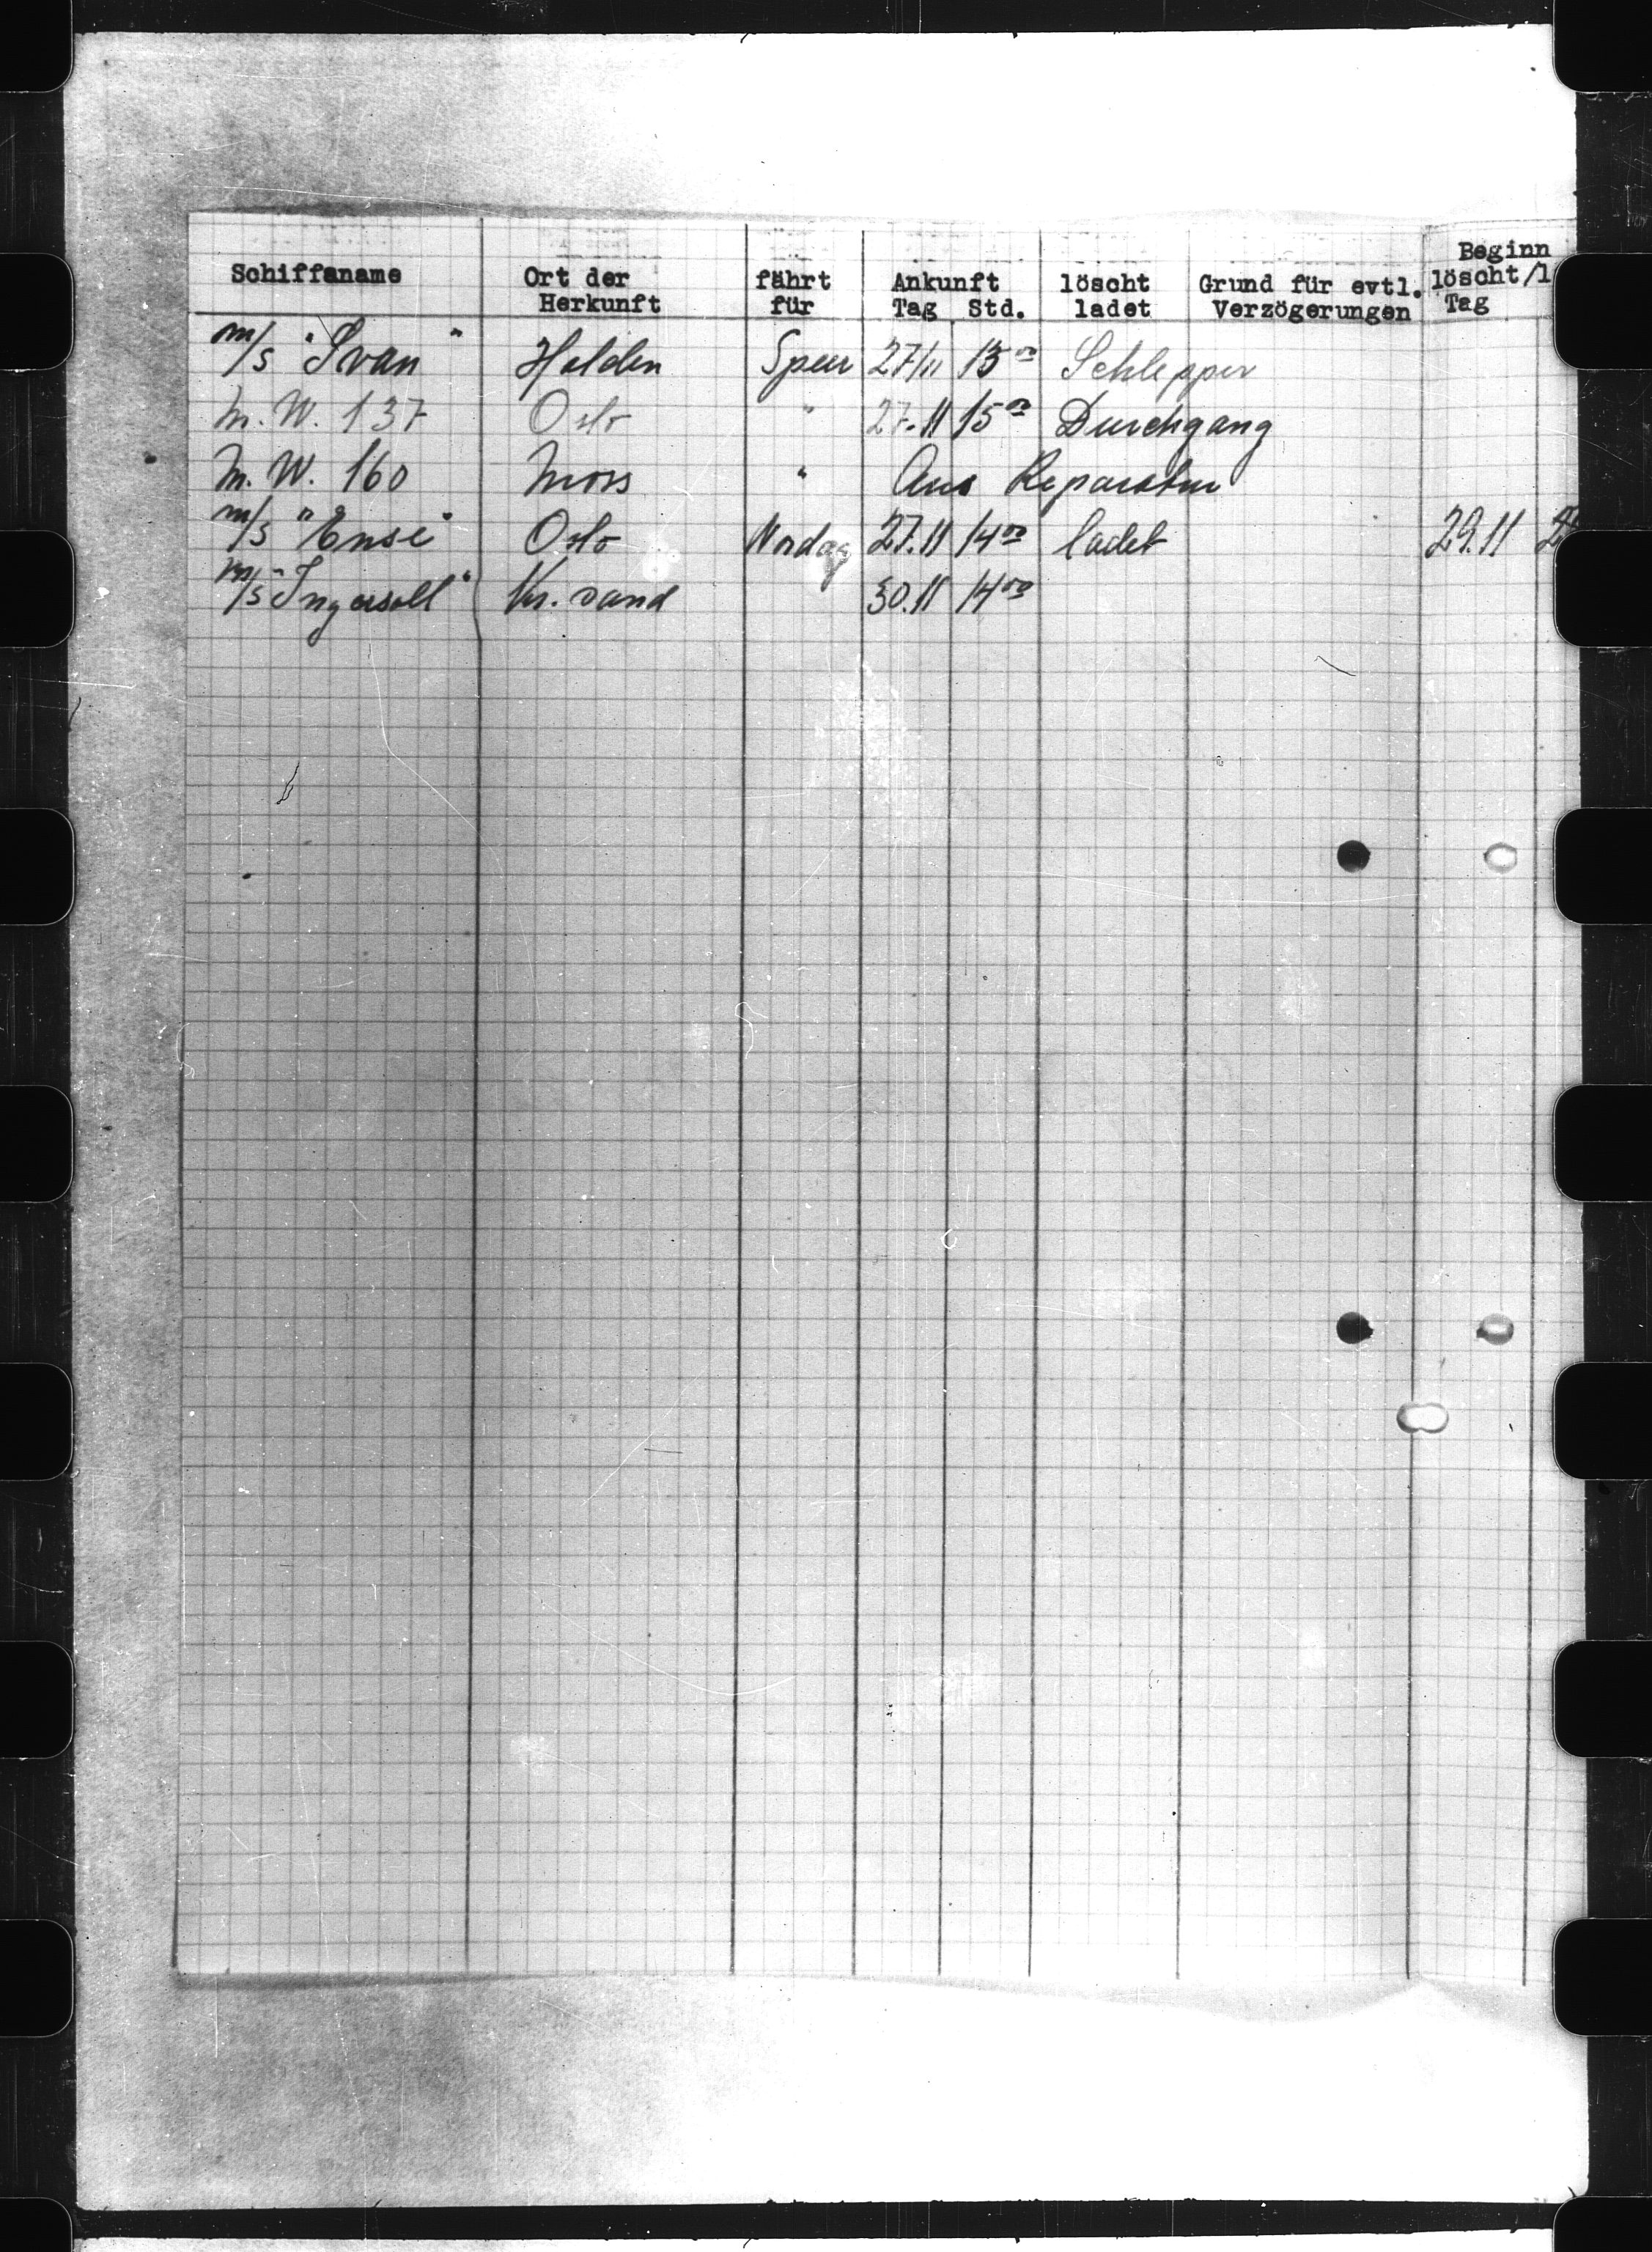 Schiffsname Ort der Herkunft fährt für Ankunft Tag Std. löscht ladet Grund für evtl. Verzögerungen Beginn löscht/l Tag
m/s "Svan" Halden Speer 27/11 13⁰⁰ Schlepper
M.W. 137 Oslo " 27.11 15⁰⁰ Durchgang
M.W. 160 Moss " Aus Reparatur
m/s "Ensi" Oslo Nordag 27.11 14⁰⁰ ladet 29.11
m/s "Ingersoll" Kr. sand 30.11 14⁰⁰